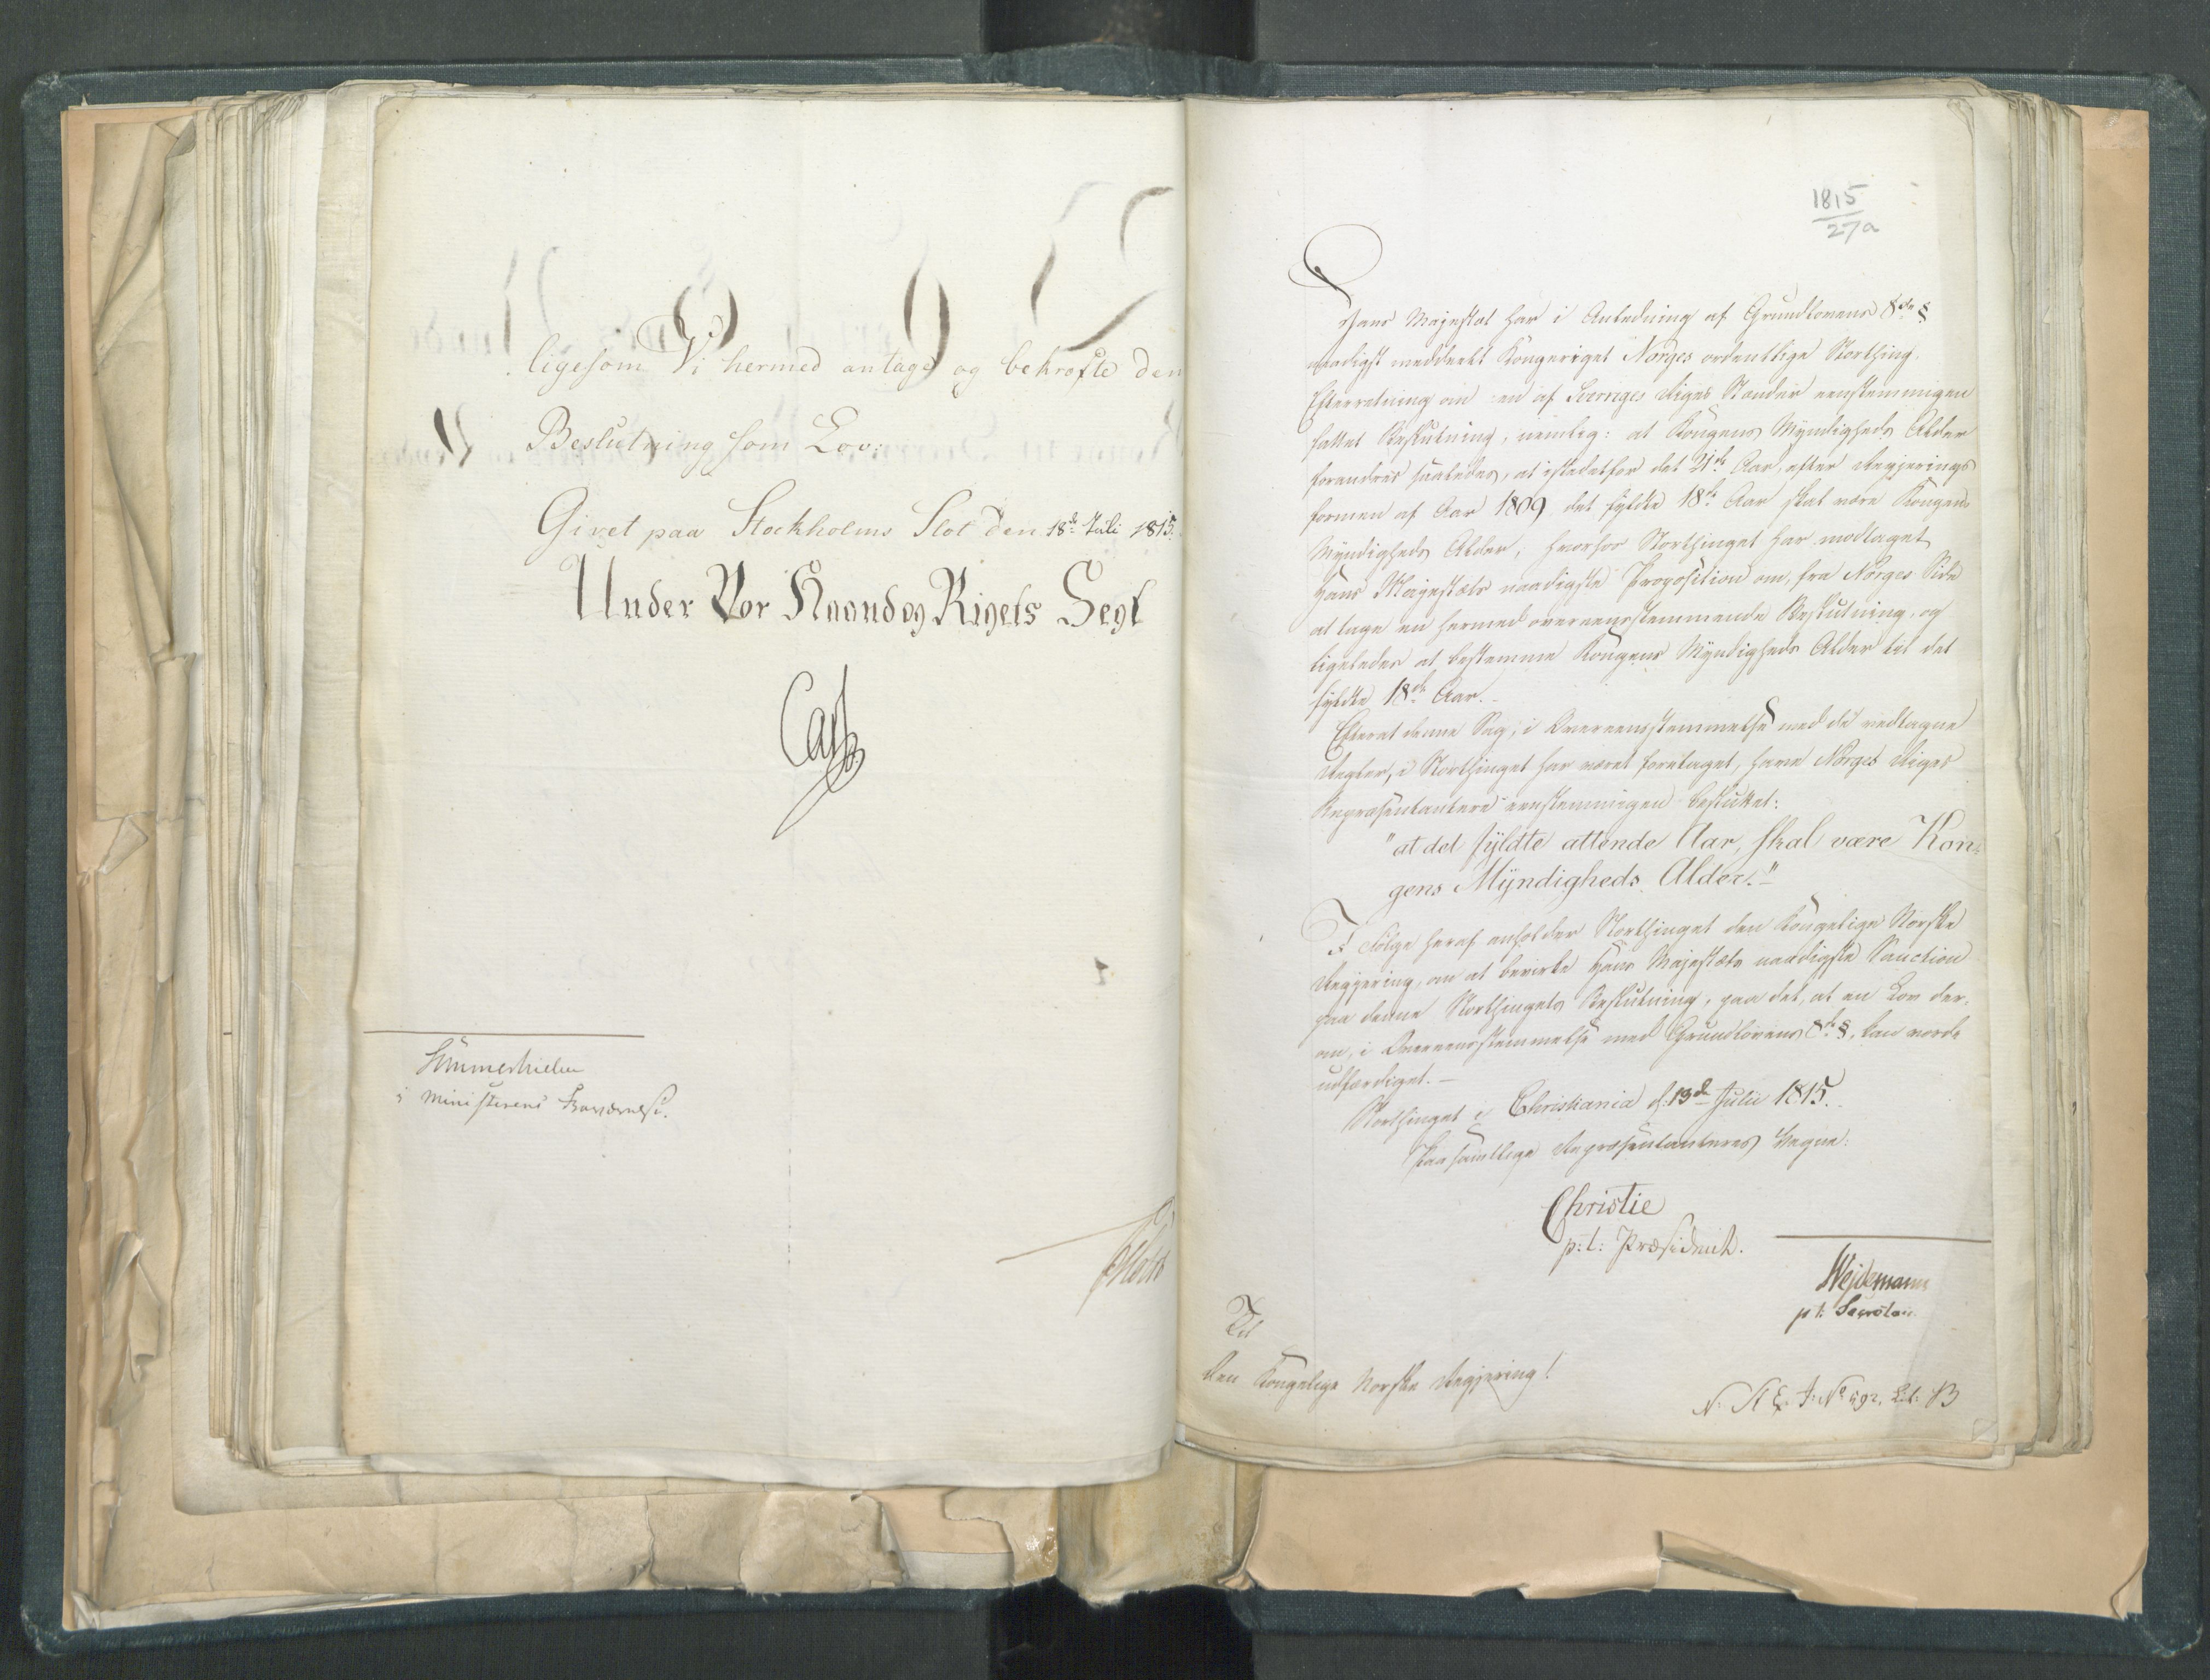 ligesom Vi hermed antage og bekræfte den
Beslutning som Lov:
Givet paa Stockholms Slot den 18de Juli 1815.
Under Vor Haand og Rigets Segl
Carl
Sommerhielm
i Ministerens Fraværelse.
Holst
1815
27a
Hans Majestæt har i Anledning af Grundlovens 8de §
naadigst meddeelt Kongeriget Norges ordentlige Storthing
Efterretning om en af Sverriges Riges Stænder eenstemmigen
fattet Beslutning, nemlig: at Kongens Myndigheds Alder
forandres saaledes, at istedetfor det 21de Aar, efter Regjerings
formen af Aar 1809 det fyldte 18de Aar skal være Kongens
Myndigheds Alder; hvorhos Storthinget har modtaget
Hans Majestæts naadigste Proposition om, fra Norges Side
at tage en hermed overeensstemmende Beslutning, og
ligeledes at bestemme Kongens Myndigheds Alder til det
fyldte 18de Aar.
Efterat denne Sag, i Overeensstemmelse med de vedtagne
Regler, i Storthinget har været foretaget, have Norges Riges
Repræsentantere eenstemmigen besluttet:
"at det fyldte attende Aar, skal være Kon-
gens Myndigheds Alder."
I Følge heraf anholder Storthinget den Kongelige Norske
Regjering, om at bevirke Hans Majestæts naadigste Sanction
paa denne Storthingets Beslutning, paa det, at en Lov der-
om, i Overeensstemmelse med Grundlovens 8de §, kan vorde
udfærdiget.
Storthinget i Christiania d: 13de Julii 1815.
Paa samtlige Repræsentanteres Vegne:
Christie
p: t: Præsident.
Wejdemann
p t: Secretair.
Til
den Kongelige Norske Regjering!
N: St E. J: No 592. Lit: B